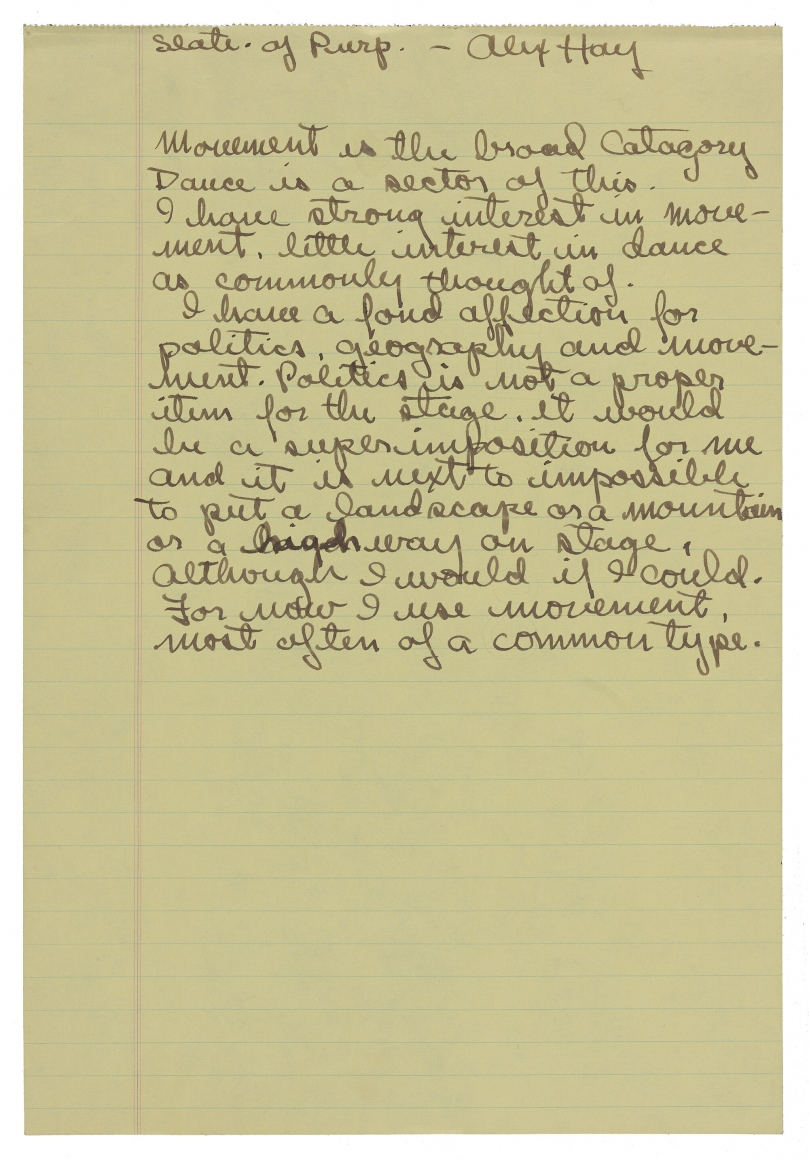 State. of Purp. - Alex Hay
Movement is the broad Catagory
Dance is a sector of this.
I have strong interest in move-
ment, little interest in dance
as commonly thought of.
I have a fond affection for
politics, geography and move-
ment. Politics is not a proper
item for the stage, it would
be a superimposition for me
and it is next to impossible
to put a landscape or a mountain
or a highway on stage,
although I would if I could.
For now I use movement,
most often of a common type.